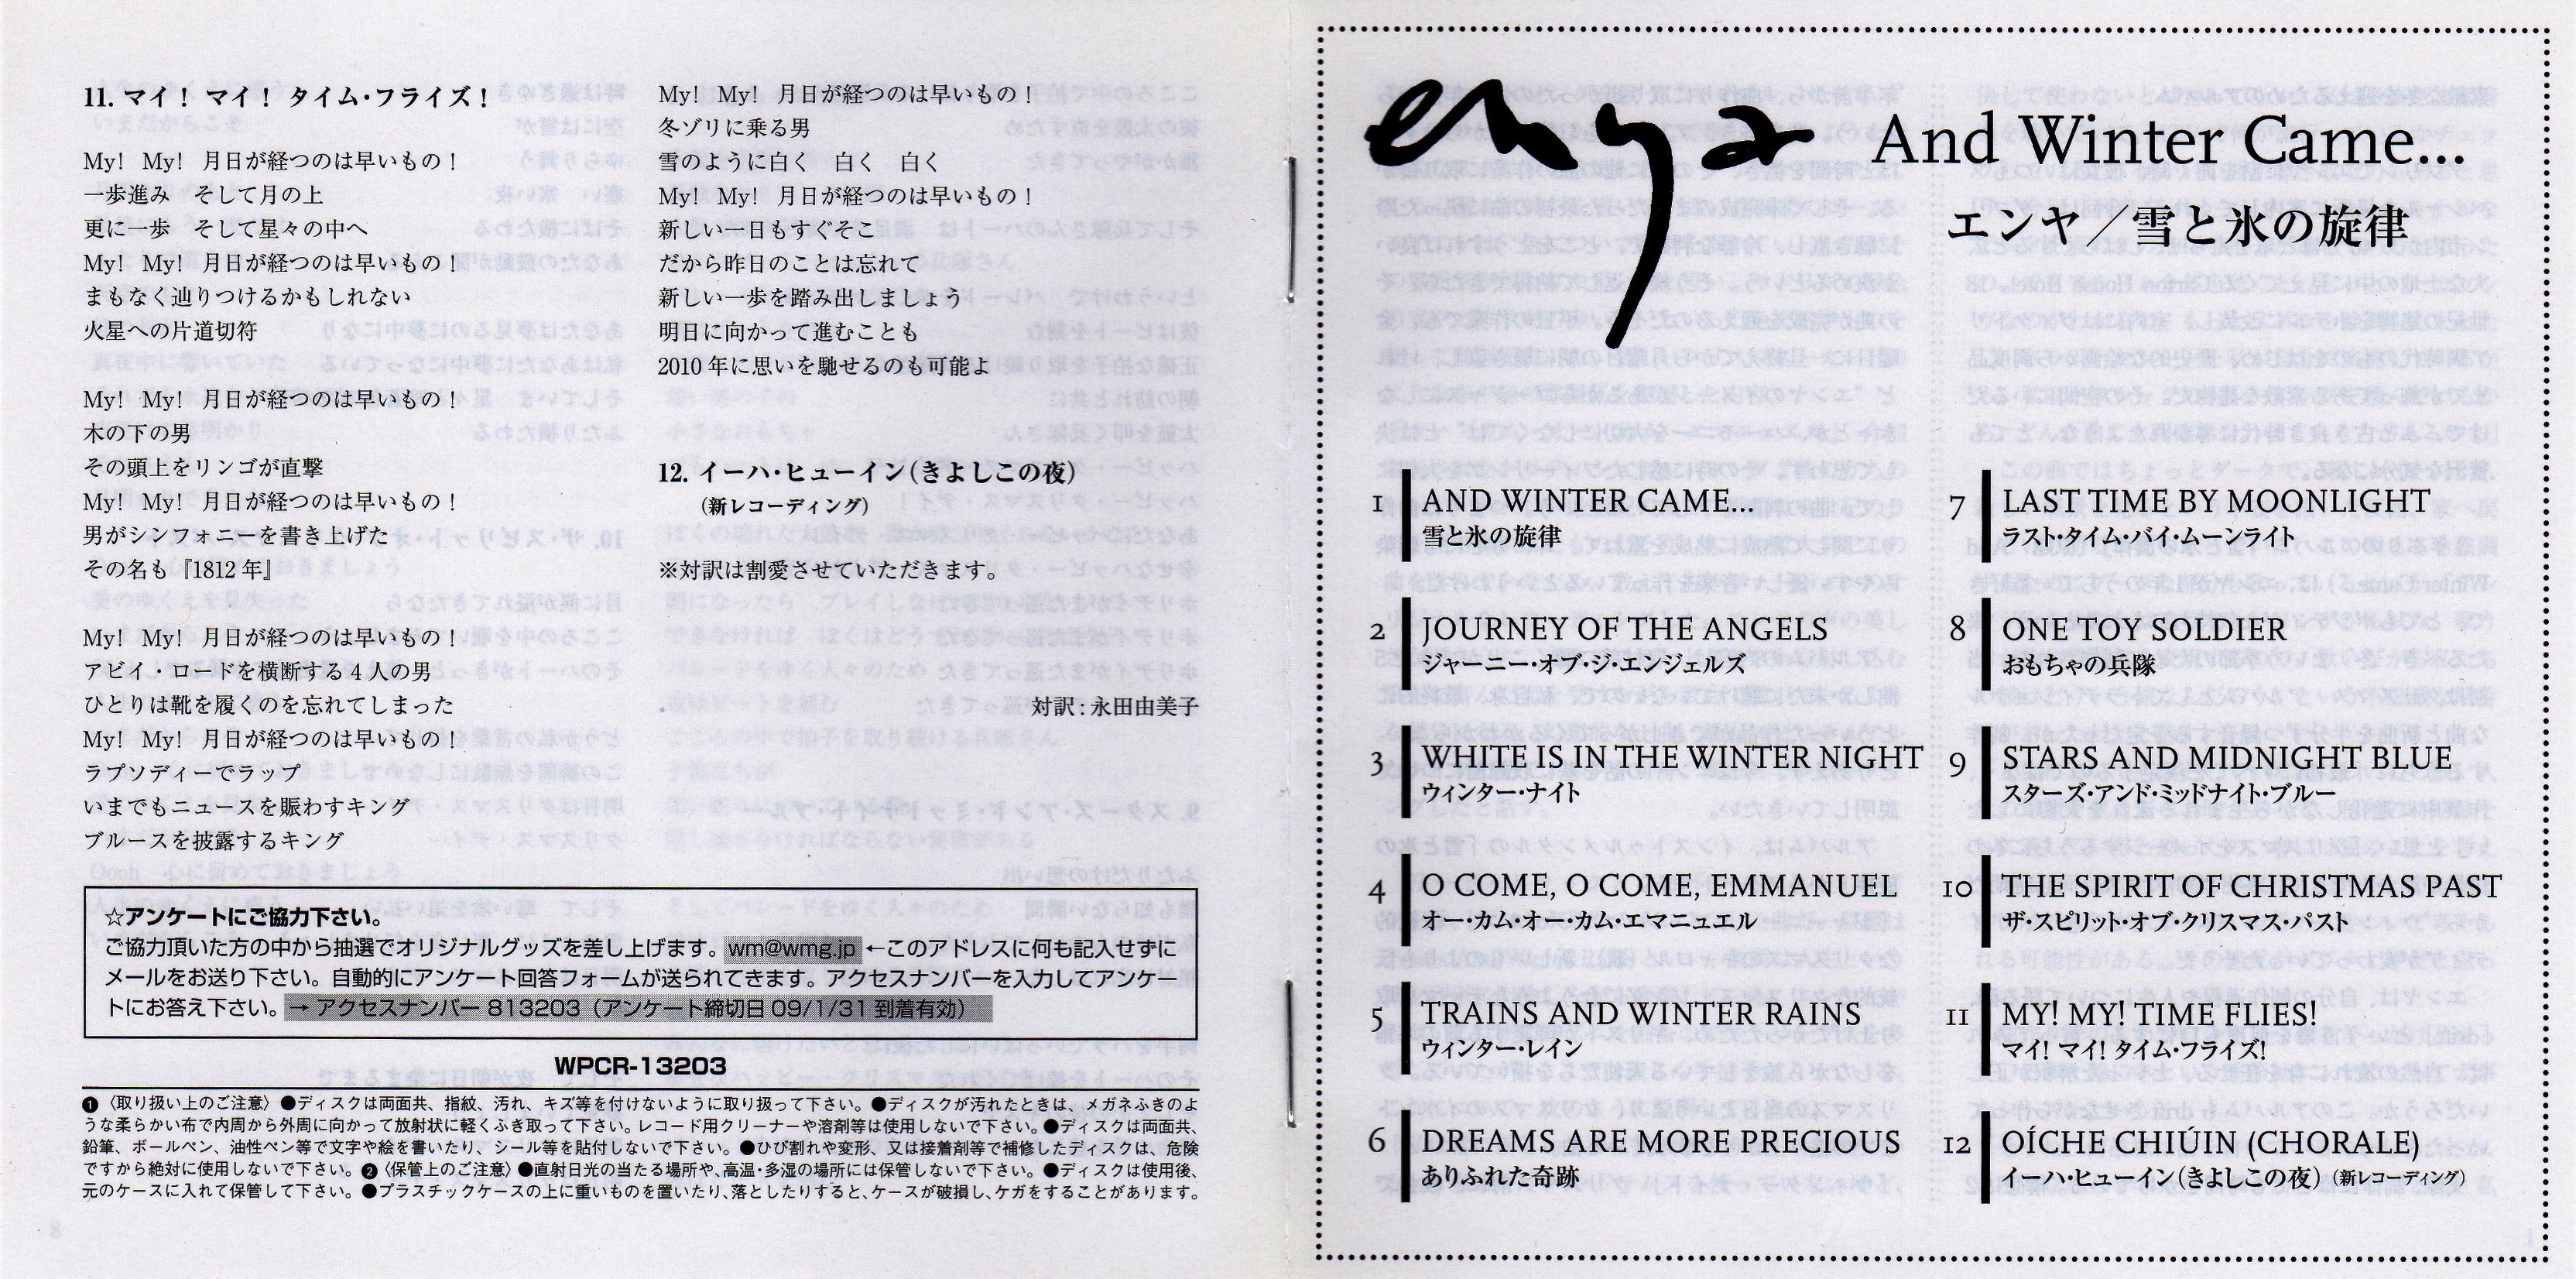 11. マイ！ マイ！ タイム・フライズ！
My!　My!　月日が経つのは早いもの！
一歩進み　そして月の上
更に一歩　そして星々の中へ
My!　My!　月日が経つのは早いもの！
まもなく辿りつけるかもしれない
火星への片道切符
My!　My!　月日が経つのは早いもの！
木の下の男
その頭上をリンゴが直撃
My!　My!　月日が経つのは早いもの！
男がシンフォニーを書き上げた
その名も『1812 年』
My!　My!　月日が経つのは早いもの！
アビイ・ロードを横断する 4 人の男
ひとりは靴を履くのを忘れてしまった
My!　My!　月日が経つのは早いもの！
ラプソディーでラップ
いまでもニュースを賑わすキング
ブルースを披露するキング
My!　My!　月日が経つのは早いもの！
冬ゾリに乗る男
雪のように白く　白く　白く
My!　My!　月日が経つのは早いもの！
新しい一日もすぐそこ
だから昨日のことは忘れて
新しい一歩を踏み出しましょう
明日に向かって進むことも
2010 年に思いを馳せるのも可能よ
12. イーハ・ヒューイン（きよしこの夜）
（新レコーディング）
※対訳は割愛させていただきます。
対訳：永田由美子
☆アンケートにご協力下さい。
ご協力頂いた方の中から抽選でオリジナルグッズを差し上げます。wm@wmg.jp ←このアドレスに何も記入せずに
メールをお送り下さい。自動的にアンケート回答フォームが送られてきます。アクセスナンバーを入力してアンケー
トにお答え下さい。→ アクセスナンバー 813203（アンケート締切日 09/1/31 到着有効）
WPCR-13203
❶〈取り扱い上のご注意〉●ディスクは両面共、指紋、汚れ、キズ等を付けないように取り扱って下さい。●ディスクが汚れたときは、メガネふきのよ
うな柔らかい布で内周から外周に向かって放射状に軽くふき取って下さい。レコード用クリーナーや溶剤等は使用しないで下さい。●ディスクは両面共、
鉛筆、ボールペン、油性ペン等で文字や絵を書いたり、シール等を貼付しないで下さい。●ひび割れや変形、又は接着剤等で補修したディスクは、危険
ですから絶対に使用しないで下さい。❷〈保管上のご注意〉●直射日光の当たる場所や、高温・多湿の場所には保管しないで下さい。●ディスクは使用後、
元のケースに入れて保管して下さい。●プラスチックケースの上に重いものを置いたり、落としたりすると、ケースが破損し、ケガをすることがあります。
enya And Winter Came...
エンヤ／雪と氷の旋律
1 AND WINTER CAME...
雪と氷の旋律
2 JOURNEY OF THE ANGELS
ジャーニー・オブ・ジ・エンジェルズ
3 WHITE IS IN THE WINTER NIGHT
ウィンター・ナイト
4 O COME, O COME, EMMANUEL
オー・カム・オー・カム・エマニュエル
5 TRAINS AND WINTER RAINS
ウィンター・レイン
6 DREAMS ARE MORE PRECIOUS
ありふれた奇跡
7 LAST TIME BY MOONLIGHT
ラスト・タイム・バイ・ムーンライト
8 ONE TOY SOLDIER
おもちゃの兵隊
9 STARS AND MIDNIGHT BLUE
スターズ・アンド・ミッドナイト・ブルー
10 THE SPIRIT OF CHRISTMAS PAST
ザ・スピリット・オブ・クリスマス・パスト
11 MY! MY! TIME FLIES!
マイ! マイ! タイム・フライズ!
12 OÍCHE CHIÚIN (CHORALE)
イーハ・ヒューイン（きよしこの夜）（新レコーディング）